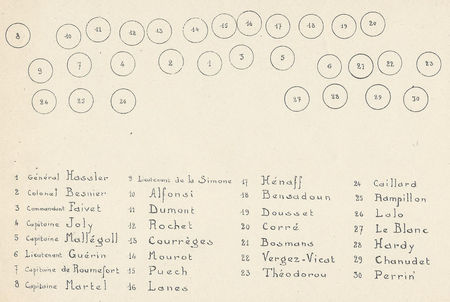 8 10 11 12 13 14 15 16 17 18 19 20
9 7 4 2 1 3 5 6 21 22 23
24 25 26 27 28 29 30
1 Général Hassler
2 Colonel Besnier
3 Commandant Faivet
4 Capitaine Joly
5 Capitaine Mallégoll
6 Lieutenant Guérin
7 Capitaine de Roumefort
8 Capitaine Martel
9 Lieutenant de la Simone
10 Alfonsi
11 Dumont
12 Rochet
13 Courrèges
14 Mourot
15 Puech
16 Lanes
17 Hénaff
18 Bensadoun
19 Dousset
20 Corré
21 Bosmans
22 Vergez-Vicat
23 Théodorou
24 Caillard
25 Rampillon
26 Lalo
27 Le Blanc
28 Hardy
29 Chanudet
30 Perrin